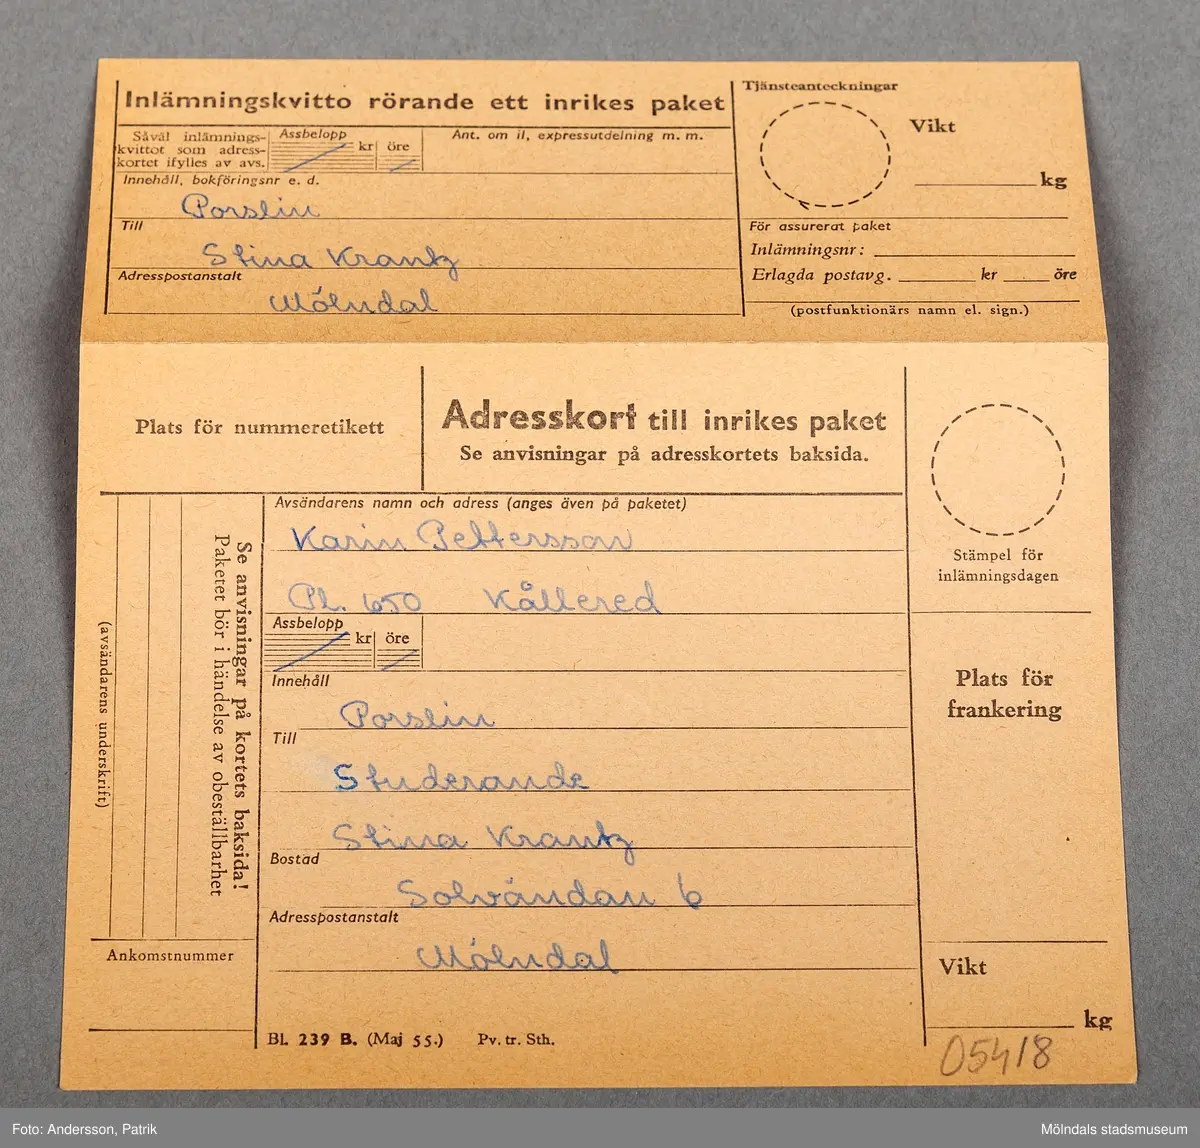 Inlämningskvitto rörande ett inrikes paket
Såväl inlämnings-
kvittot som adress-
kortet ifylles av avs.
Assbelopp
kr
öre
Ant. om il, expressutdelning m. m.
Innehåll, bokföringsnr e. d.
Porslin
Till
Stina Krantz
Adresspostanstalt
Mölndal
Tjänsteanteckningar
Vikt
kg
För assurerat paket
Inlämningsnr:
Erlagda postavg. kr öre
(postfunktionärs namn el. sign.)
Plats för nummeretikett
Adresskort till inrikes paket
Se anvisningar på adresskortets baksida.
Avsändarens namn och adress (anges även på paketet)
Karin Pettersson
Pl. 650 Kållered
Assbelopp
kr
öre
Innehåll
Porslin
Till
Studerande
Stina Krantz
Bostad
Solvändan 6
Adresspostanstalt
Mölndal
Se anvisningar på kortets baksida!
Paketet bör i händelse av obeställbarhet
(avsändarens underskrift)
Ankomstnummer
Stämpel för
inlämningsdagen
Plats för
frankering
Vikt
kg
BL 239 B. (Maj 55.) Pv. tr. Sth.
05418
Foto: Andersson, Patrik
Mölndals stadsmuseum